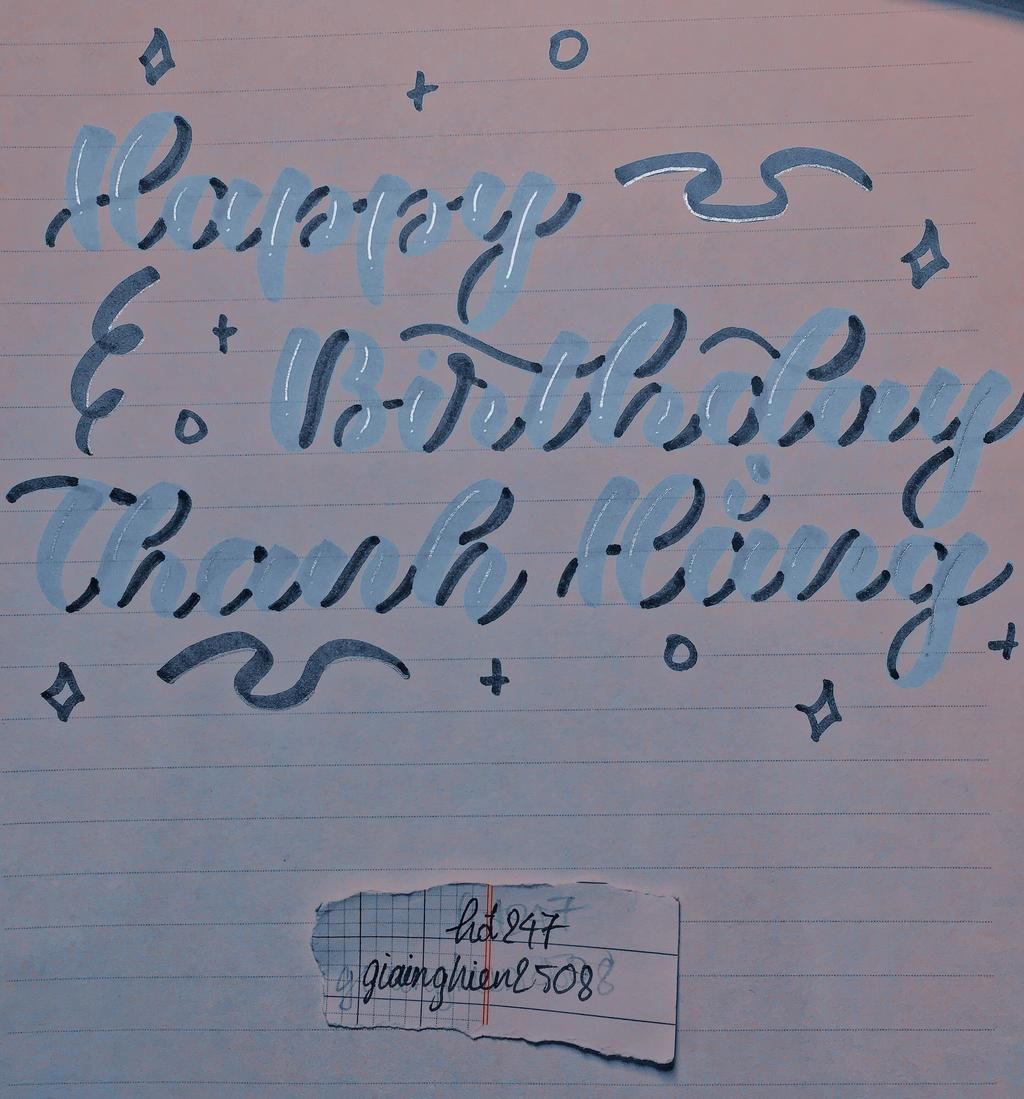 Happy
Birthday
Thanh Hằng
hd247
giainghien2508